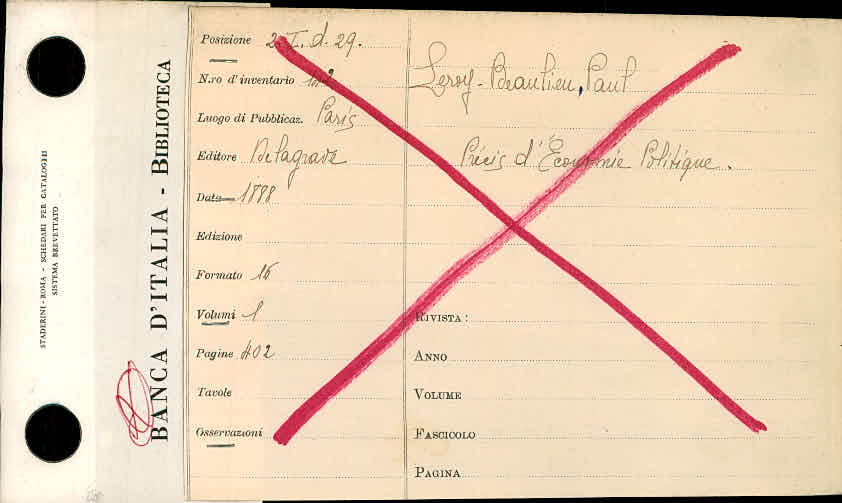 STADERINI - ROMA - SCHEDARI PER CATALOGHI
SISTEMA BREVETTATO
BANCA D'ITALIA - BIBLIOTECA
Posizione 2. I. d. 29.
N.ro d'inventario
Luogo di Pubblicaz. Paris
Editore Delagrave
Data 1888
Edizione
Formato 16
Volumi 1
Pagine 402
Tavole
Osservazioni
Leroy-Beaulieu, Paul
Précis d'Économie Politique.
RIVISTA:
ANNO
VOLUME
FASCICOLO
PAGINA